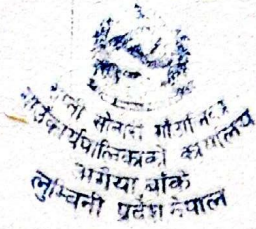 राप्ती सोनारी गाउँपालिका
गाउँकार्यपालिकाको कार्यालय
बाँके
लुम्बिनी प्रदेश नेपाल